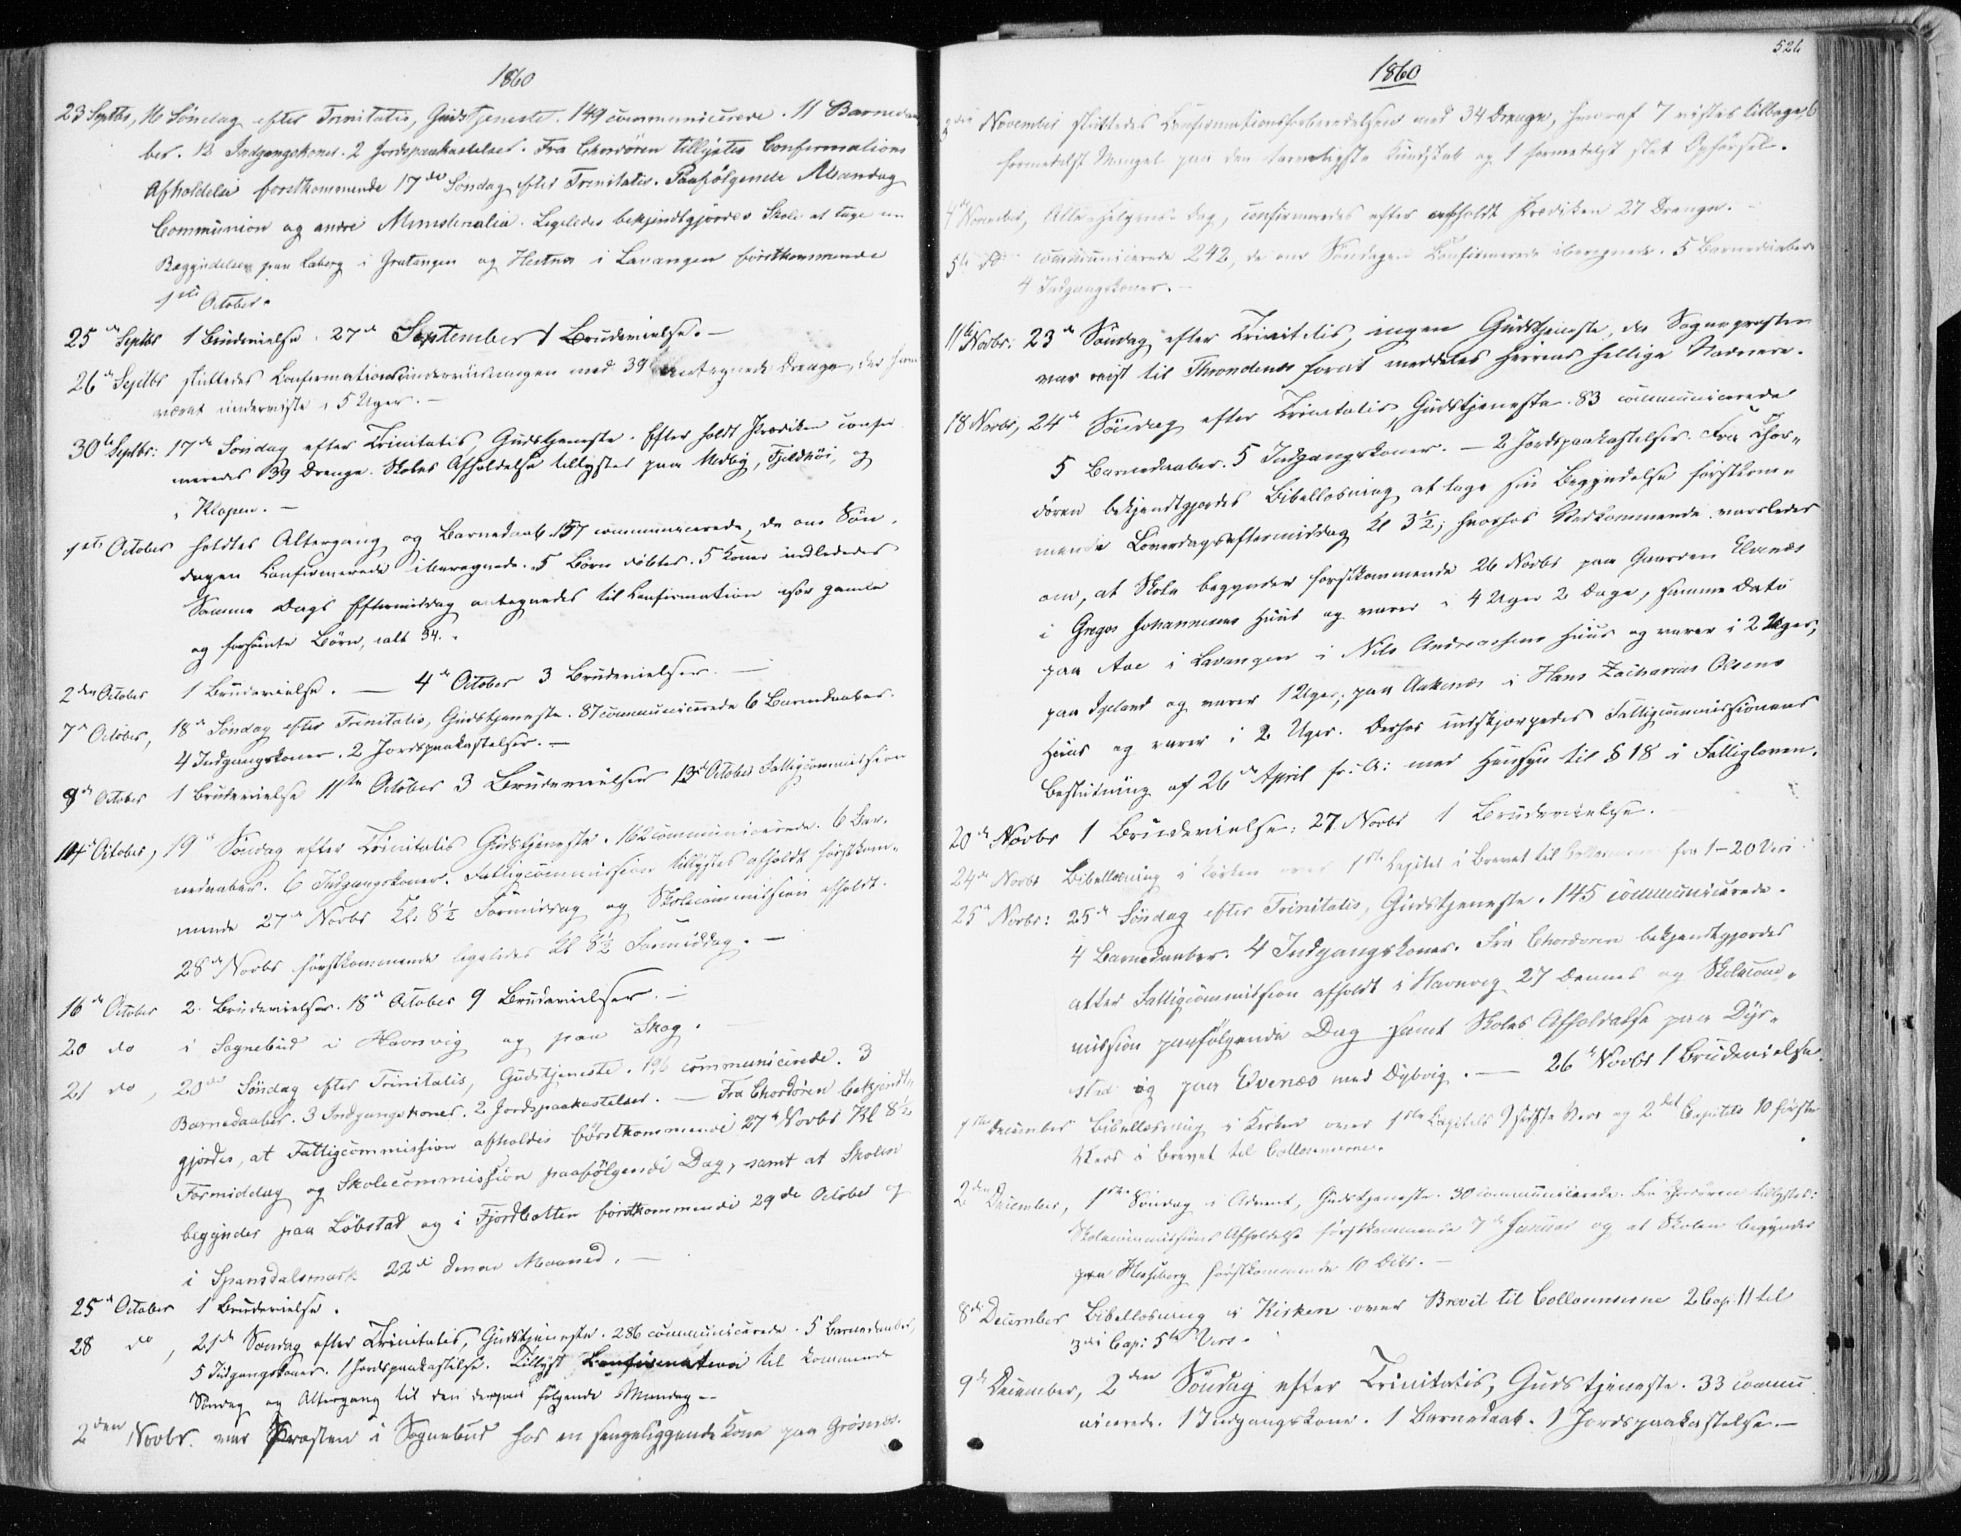 1860
23 Septbr, 16 Søndag efter Trinitatis, Gudstjeneste. 149 communicerede. 11 Barnedaa
ber. 12 Indgangskoner. 2 Jordspaakastelser. Fra Chordören tillystes Confirmations
Afholdelse førstkommende 17de Søndag efter Trinitatis. Paafølgende Mandag
Communion og andre Ministerialia. Ligeledes bekjendtgjordes Skole at tage sin
Begyndelse paa Laberg i Gratangen og Hestnes i Lavangen førstkommende
1ste October.
25de Septbr 1 Brudevielse. 27de September 1 Brudevielse. —
26de Septbr sluttedes Confirmationsunderviisningen med 39 antegnede Drenge, der have
været underviste i 5 Uger. —
30te Septbr: 17de Søndag efter Trinitatis Gudstjeneste. Efter holdt Prædiken confir
meredes 39 Drenge. Skoles Afholdelse tillystes paa Medby, Fjeldhøi, og
i Klopen. —
1ste October holdtes Altergang og Barnedaab. 157 communicerede, de om Søn-
dagen Confirmerede iberegnede. 5 Børn døbtes. 5 Koner indlededes
Samme Dags Eftermiddag antegnedes til Confirmation gamle
og forsømte Børn, ialt 34. -
2den October 1 Brudevielse. — 4de October 3 Brudevielser. —
7de October, 18de Søndag efter Trinitatis, Gudstjeneste. 87 communicerede 6 Barnedaaber.
4 Indgangskoner. 2 Jordspaakastelser. —
9de October 1 Brudevielse 11te October 3 Brudevielser 13de October Fattigcommission
14de October, 19de Søndag efter Trinitatis Gudstjeneste. 162 communicerede. 6 Bar-
nedaaber. 6 Indgangskoner. Fattigcommission tillystes afholdt førstkom-
mende 27de Novbr Kl. 8½ Formiddag og Skolecommission afholdt
28de Novbr førstkommende ligeledes Kl 8½ Formiddag. —
16de October 2 Brudevielser. 18de October 9 Brudevielser. —
20 do i Sognebud i Havnvig og paa Skog. —
21 do, 20de Søndag efter Trinitatis, Gudstjeneste. 196 communicerede. 3
Barnedaaber. 3 Indgangskoner. 2 Jordspaakastelser. — Fra Chordören bekjendt-
gjordes, at Fattigcommission afholdes førstkommende 27de Novbr Kl 8½
Formiddag og Skolecommission paafølgende Dag, samt at Skolen
begynder paa Løbstad og i Fjordbotten førstkommende 29de October og
i Spansdalsmark 22de denne Maaned. —
25de October 1 Brudevielse.
28 do, 21de Søndag efter Trinitatis, Gudstjeneste. 286 communicerede. 5 Barnedaaber,
5 Indgangskoner. 1 Jordspaakastelse. Tillyst Confirmation til kommende
Søndag og Altergang til den derpaa følgende Mandag —
2den Novbr. var Præsten i Sognebud hos en sengeliggende Kone paa Grønnes.
526
1860
2den November sluttedes Confirmationsforberedelsen med 34 Drenge, hvoraf 7 viistes tilbage, 6
formedelst Mangel paa den tarveligste Kundskab og 1 formedelst slet Opførsel.
4de November, Alle-Helgens-Dag, confirmeredes efter afholdt Prædiken 27 Drenge. —
5te do communicerede 242, de om Søndagen Confirmerede iberegnede. 5 Barnedaaber
4 Indgangskoner. —
11te Novbr: 23de Søndag efter Trinitatis, ingen Gudstjeneste, da Sognepræsten
var reist til Throndenes forat meddeles Herrens hellige Nadvere.
18 Novbr, 24de Søndag efter Trinitatis, Gudstjeneste. 83 communicerede
5 Barnedaaber. 5 Indgangskoner. — 2 Jordspaakastelser. Fra Chor-
døren bekjendtgjordes Bibellæsning at tage sin Begyndelse førstkom-
mende Løverdagseftermiddag Kl 3½; hvorhos Vedkommende varsledes
om, at Skole begynder førstkommende 26 Novbr paa Gaarden Elvenes
i Gregos Johannesens Huus og varer i 4 Uger 2 Dage, samme Dato
paa Aae i Lavangen i Nils Andreasens Huus og varer i 2 Uger,
paa Igeland og varer 1 Uge, paa Aakenes i Hans Zacharias Olsens
Huus og varer i 2 Uger. Derhos indskjærpedes Fattigcommissionens
Beslutning af 26de April f: A: med Hensyn til § 18 i Fattigloven.
20de Novbr 1 Brudevielse: 27 Novbr 1 Brudevielse. —
24de Novbr Bibellæsning i Kirken over 1ste Kapitel i Brevet til Collosenserne fra 1-20 Vers
25de Novbr: 25de Søndag efter Trinitatis, Gudstjeneste. 145 communicerede.
4 Barnedaaber. 4 Indgangskoner. Fra Chordøren bekjendtgjordes
atter Fattigcommission afholdt i Havnvig 27 dennes og Skolecom-
mission paafølgende Dag samt Skoles Afholdelse paa Dyr-
sted og paa Evenæs med Dybvig. — 26de Novbr 1 Brudevielse.
1ste December Bibellæsning i Kirken over 1ste Capitels 9 sidste Vers og 2det Capitels 10 første
Vers i Brevet til Collosenserne.
2den December, 1ste Søndag i Advent, Gudstjeneste. 30 communicerede. Fra Chordøren tillystes:
Skolecommissions Afholdelse førstkommende 7de Januar og at Skolen begynder
paa Hesseberg førstkommende 10 Decbr. —
8de December Bibellæsning i Kirken over Brevet til Collosenserne 2 Cap. 11 til
3die Cap: 5te Vers.
9de December, 2den Søndag efter Trinitatis, Gudstjeneste. 33 commu
nicerede. 1 Indgangskone. 1 Barnedaab. 1 Jordspaakastelse. —